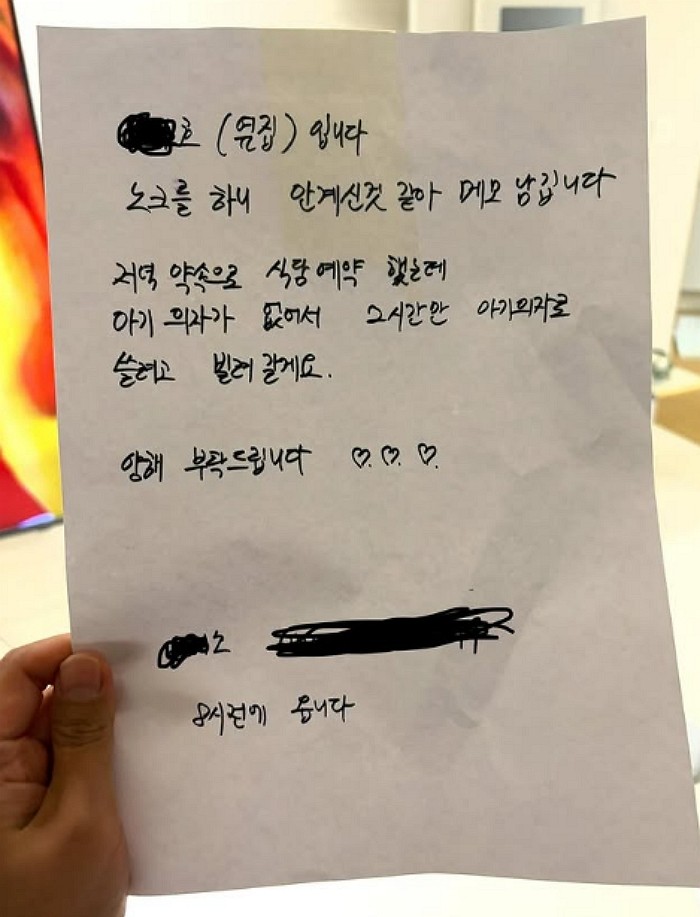 호 (옆집) 입니다
노크를 하니 안계신것 같아 메모 남깁니다
저녁 약속으로 식당예약 했는데
아기 의자가 없어서 2시간만 아기의자로
쓸려고 빌려 갈게요.
양해 부탁드립니다 ♡.♡.♡.
8시전에 옵니다